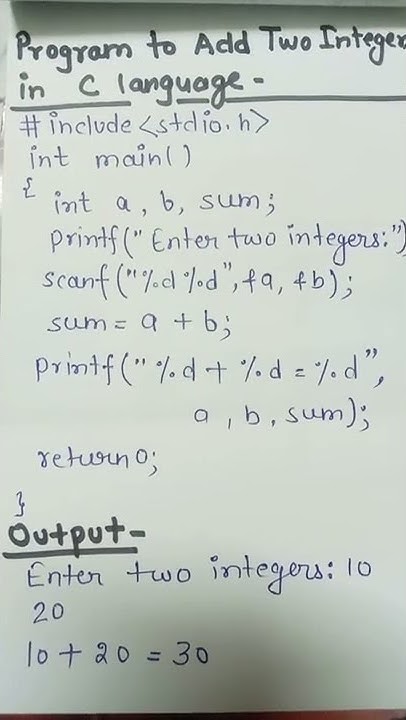 Program to Add Two Integer
in C language -
# include <stdio.h>
int main()
{ int a, b, sum;
printf(" Enter two integers:")
scanf("%d %d", &a, &b);
sum = a + b;
printf(" %d + %d = %d",
a, b, sum);
return 0;
}
Output-
Enter two integers: 10
20
10 + 20 = 30